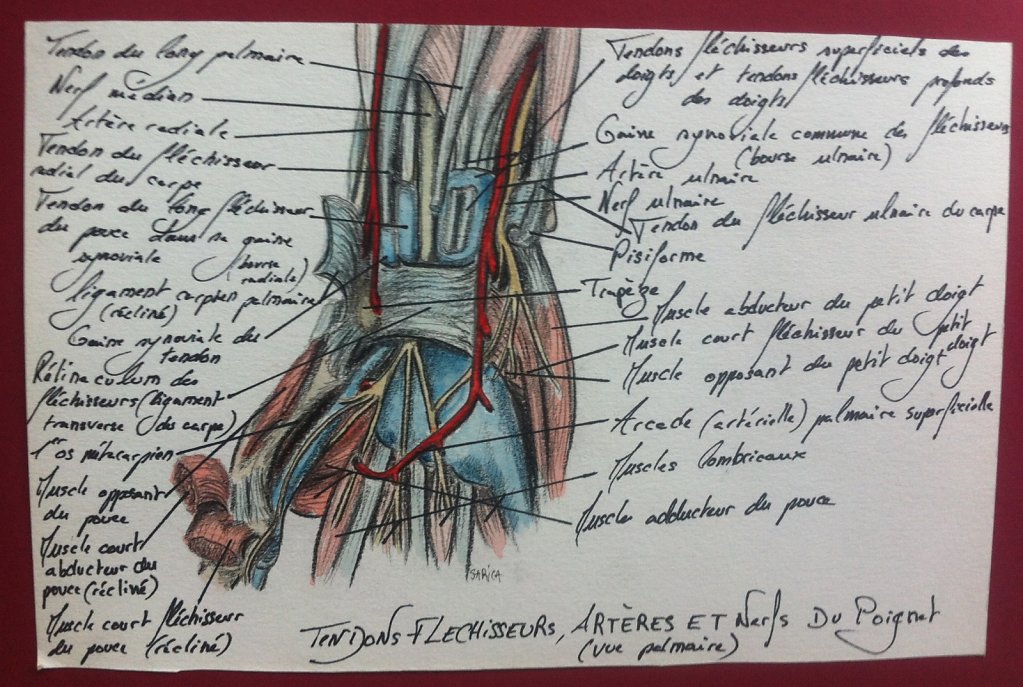 Tendon du long palmaire
Nerf médian
Artère radiale
Tendon du fléchisseur
radial du carpe
Tendon du long fléchisseur
du pouce dans sa gaine
synoviale (bourse
radiale)
Ligament carpien palmaire
(récliné)
Gaine synoviale du
tendon
Rétinaculum des
fléchisseurs (ligament
transverse du carpe)
1er os métacarpien
Muscle opposant
du pouce
Muscle court
abducteur du
pouce (récliné)
Muscle court fléchisseur
du pouce (récliné)
Tendons fléchisseurs superficiels des
doigts et tendons fléchisseurs profonds
des doigts
Gaine synoviale commune des fléchisseurs
(bourse ulnaire)
Artère ulnaire
Nerf ulnaire
Tendon du fléchisseur ulnaire du carpe
Pisiforme
Trapèze
Muscle abducteur du petit doigt
Muscle court fléchisseur du petit
doigt
Muscle opposant du petit doigt
Arcade (artérielle) palmaire superficielle
Muscles lombricaux
Muscles adducteur du pouce
SARICA
TENDONS FLECHISSEURS, ARTÈRES ET Nerfs Du Poignet
(vue palmaire)